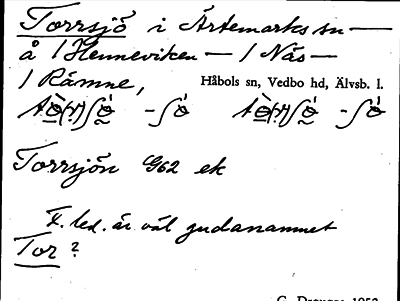 Torrsjö i Ärtemarks sn —
å / Henneviken — / Näs —
/ Rämne, Håbols sn, Vedbo hd, Älvsb. l.
Torrsjön G62 ek
F. led. är väl gudanamnet
Tor ?